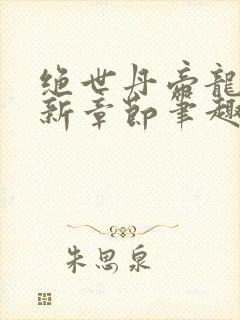 绝世丹帝龍
新章節筆趣
朱思泉